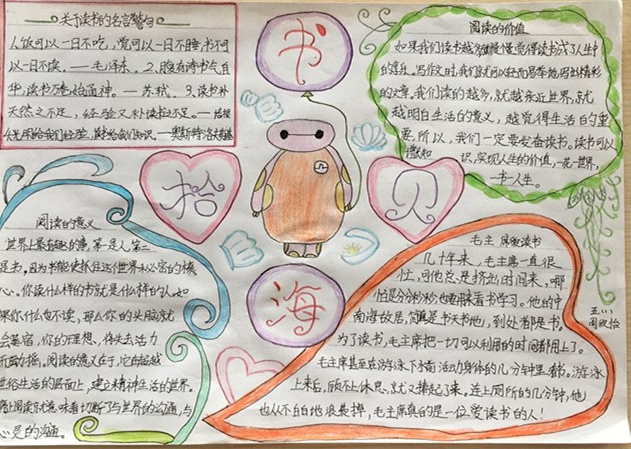 关于读书的名言警句
人饭可以一日不吃，觉可以一日不睡，书不
可以一日不读。——毛泽东。2、腹有诗书气自
华，读书万卷始通神。——苏轼。3、读书补
天然之不足，经验又补读书之不足。——培根
书
拾
贝
海
阅读的价值
如果我们读书越多，慢慢觉得读书成了人生中
的享乐。写作文时，我们就可以轻而易举地写出精彩
的文章。我们读的越多，就越亲近世界，就
越明白生活的意义，越觉得生活的重
要。所以，我们一定要发奋读书。读书可以
识，实现人生的价值，一花一世界，
一书一人生。
阅读的意义
世界上最有趣的事，第一是人，第二
是书，因为书能使抓住这个世界和必需的核
心。你读什么样的书就是什么样的人，如
果你什么也不读，那么你的头脑就
会萎宿，你的理想，将失去活力
而动摇。阅读的意义在于，它在超越
世俗生活的层面上，建立精神生活的世界。
阅读就意味着切断了与世界的沟通，与
心灵的沟通。
毛主席爱读书
几十年来，毛主席一直很
忙，可他总是挤出时间来，哪
怕是分分秒秒也要用来看书学习。他的中
南海故居，简直是书天书地，到处都是书。
为了读书，毛主席把一切可以利用的时间都用上了。
毛主席甚至在游泳下水前活动身体的几分钟里看书。游泳
上来后，顾不上休息，就又捧起了书。连上厕所的几分钟，他
也从不白白地浪费掉，毛主席真的是一位爱读书的人！
五(1)
周欣怡